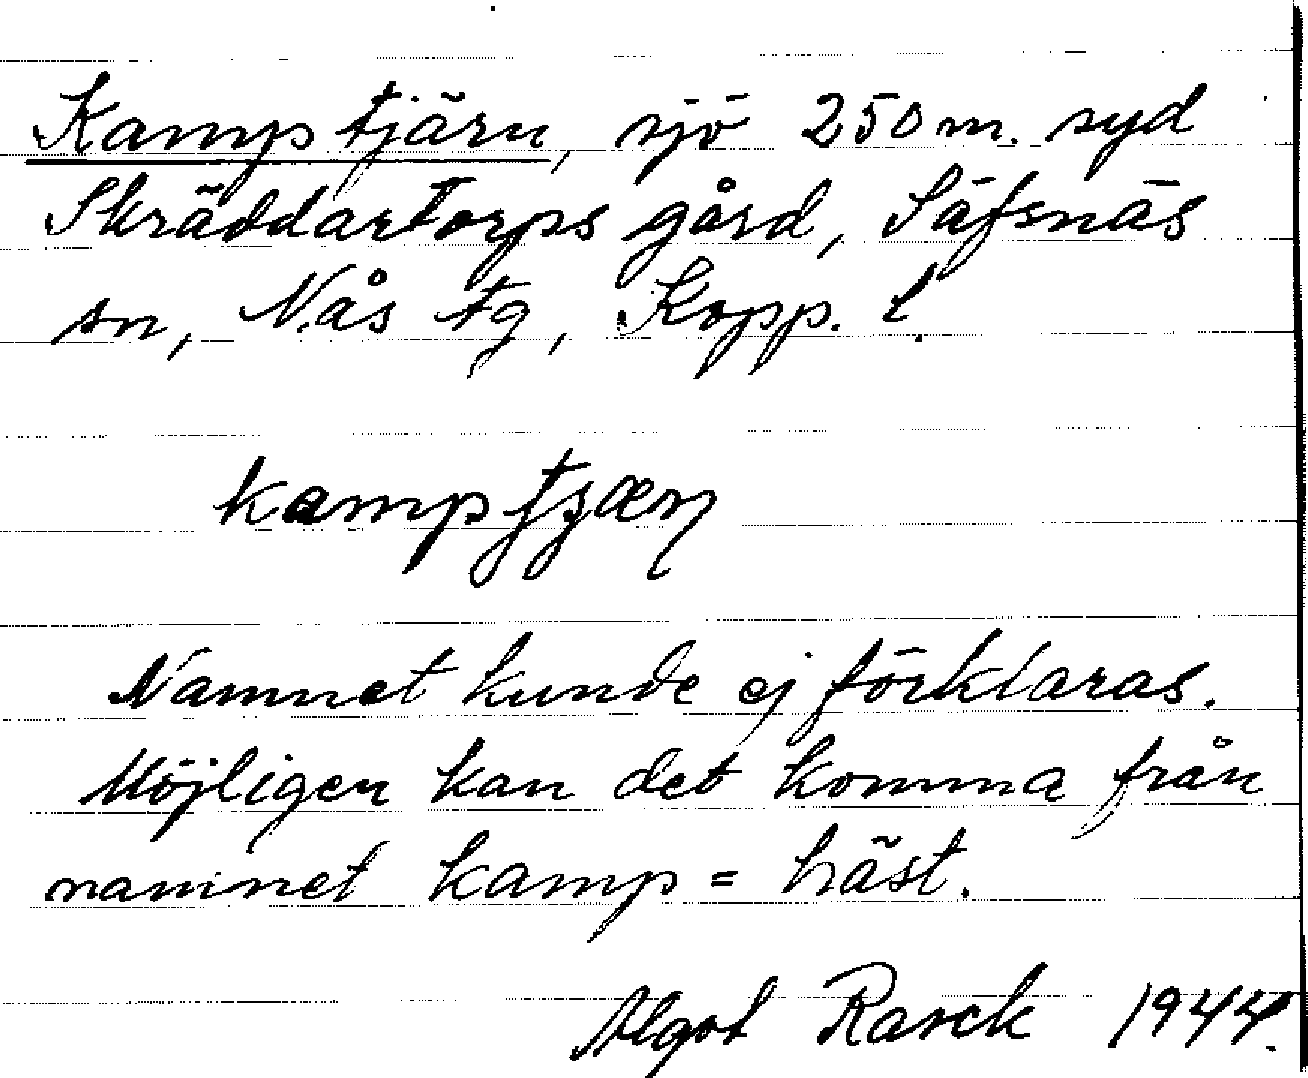 Kamptjärn, sjö 250 m. syd
Skräddartorps gård, Säfsnäs
sn, Nås tg, Kopp. l.
kamptjæɳ
Namnet kunde ej förklaras.
Möjligen kan det komma från
namnet kamp = häst.
Algot Rasck 1944.